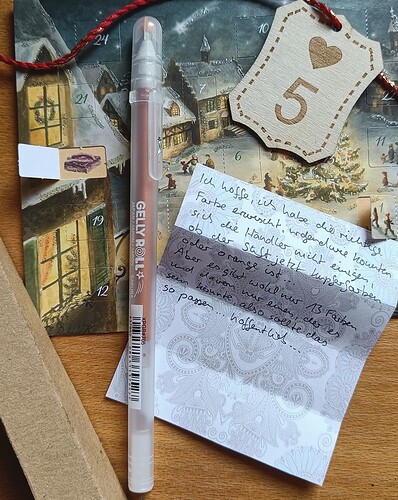 24
10
21
6
11
19
12
5
GELLY ROLL
Ich hoffe, ich habe die richtige
Farbe erwischt, irgendwie konnten
sich die Händler nicht einigen,
ob der Stift jetzt kupferfarben
oder orange ist...
Aber es gibt wohl nur 13 Farben
und davon nur einen, der es
sein könnte, also sollte das
so passen... hoffentlich...